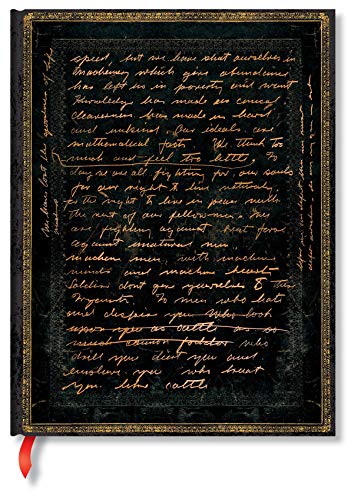 speed, but we have shut ourselves in
Machinery which gives abundance
has left us in poverty and want
Knowledge has made us cynical
Cleverness has made us hard
and unkind. Our ideals are
mathematical facts. We think too
much and feel too little. To
day we are all fighting for our souls
for our right to live naturally
the right to live in peace with
the rest of our fellow men. You
are fighting against
against unnatural men
machine men, with machine
minds and machine hearts
Soldiers dont give yourselves to
To men who hate
and despise you who look
upon you as cattle as
cannon fodder who
drill you diet you and
enslave you who treat
you like cattle
We have lost the of life